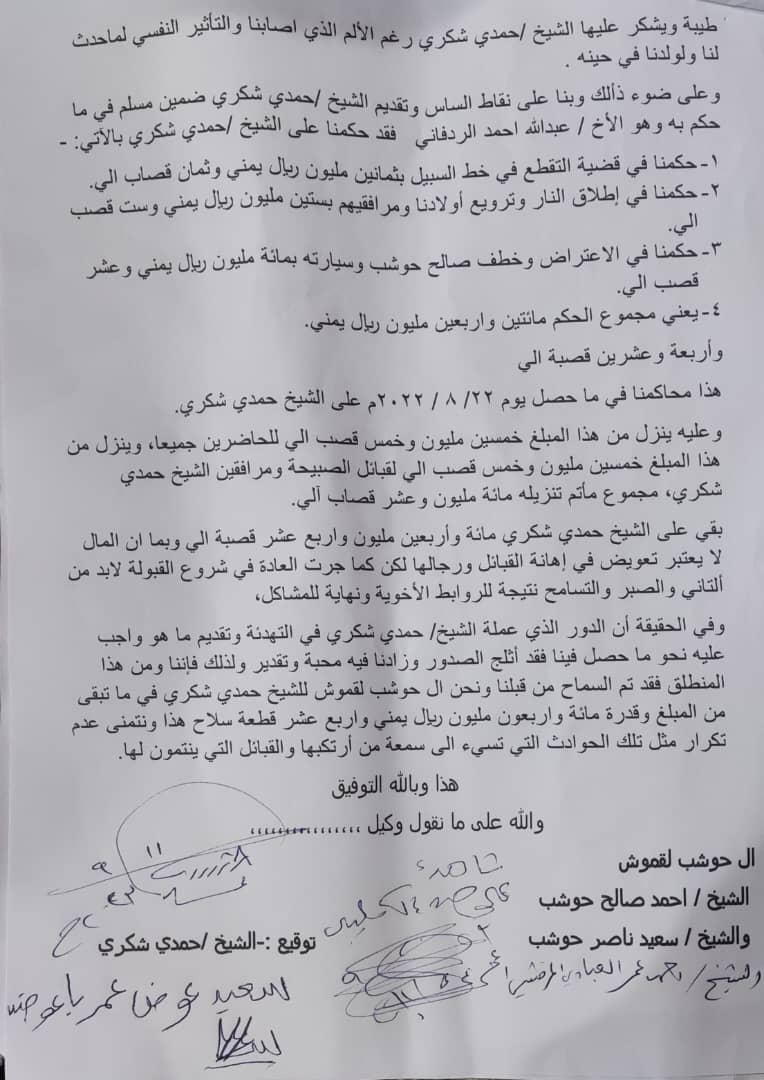 طيبة ويشكر عليها الشيخ /حمدي شكري رغم الألم الذي اصابنا والتأثير النفسي لماحدث
لنا ولولدنا في حينه .
وعلى ضوء ذألك وبنا على نقاط الساس وتقديم الشيخ /حمدي شكري ضمين مسلم في ما
حكم به وهو الأخ / عبدالله احمد الردفاني فقد حكمنا على الشيخ /حمدي شكري بالآتي: -
١- حكمنا في قضية التقطع في خط السبيل بثمانين مليون ريال يمني وثمان قصاب الي.
٢- حكمنا في إطلاق النار وترويع أولادنا ومرافقيهم بستين مليون ريال يمني وست قصب
الي.
٣- حكمنا في الاعتراض وخطف صالح حوشب وسيارته بمائة مليون ريال يمني وعشر
قصب الي.
٤- يعني مجموع الحكم مائتين واربعين مليون ريال يمني.
وأربعة وعشرين قصبة الي
هذا محاكمنا في ما حصل يوم ٢٢/ ٨ / ٢٠٢٢م على الشيخ حمدي شكري.
وعليه ينزل من هذا المبلغ خمسين مليون وخمس قصب الي للحاضرين جميعا، وينزل من
هذا المبلغ خمسين مليون وخمس قصب الي لقبائل الصبيحة ومرافقين الشيخ حمدي
شكري، مجموع مأتم تنزيله مائة مليون وعشر قصاب آلي.
بقي على الشيخ حمدي شكري مائة وأربعين مليون واربع عشر قصبة الي وبما ان المال
لا يعتبر تعويض في إهانة القبائل ورجالها لكن كما جرت العادة في شروع القبولة لابد من
ألتاني والصبر والتسامح نتيجة للروابط الأخوية ونهاية للمشاكل،
وفي الحقيقة أن الدور الذي عملة الشيخ/ حمدي شكري في التهدئة وتقديم ما هو واجب
عليه نحو ما حصل فينا فقد أثلج الصدور وزادنا فيه محبة وتقدير ولذلك فإننا ومن هذا
المنطلق فقد تم السماح من قبلنا ونحن ال حوشب لقموش للشيخ حمدي شكري في ما تبقى
من المبلغ وقدرة مائة واربعون مليون ريال يمني واربع عشر قطعة سلاح هذا ونتمنى عدم
تكرار مثل تلك الحوادث التي تسيء الى سمعة من أرتكبها والقبائل التي ينتمون لها.
هذا وبالله التوفيق
والله على ما نقول وكيل ،،،،،،،،،،،،،،،،
ال حوشب لقموش
شاهد
الشيخ / احمد صالح حوشب
والشيخ / سعيد ناصر حوشب
توقيع :-الشيخ /حمدي شكري
والشيخ / احمد عمر العبادي المرقشي
سعيد عوض عمر باعوضه